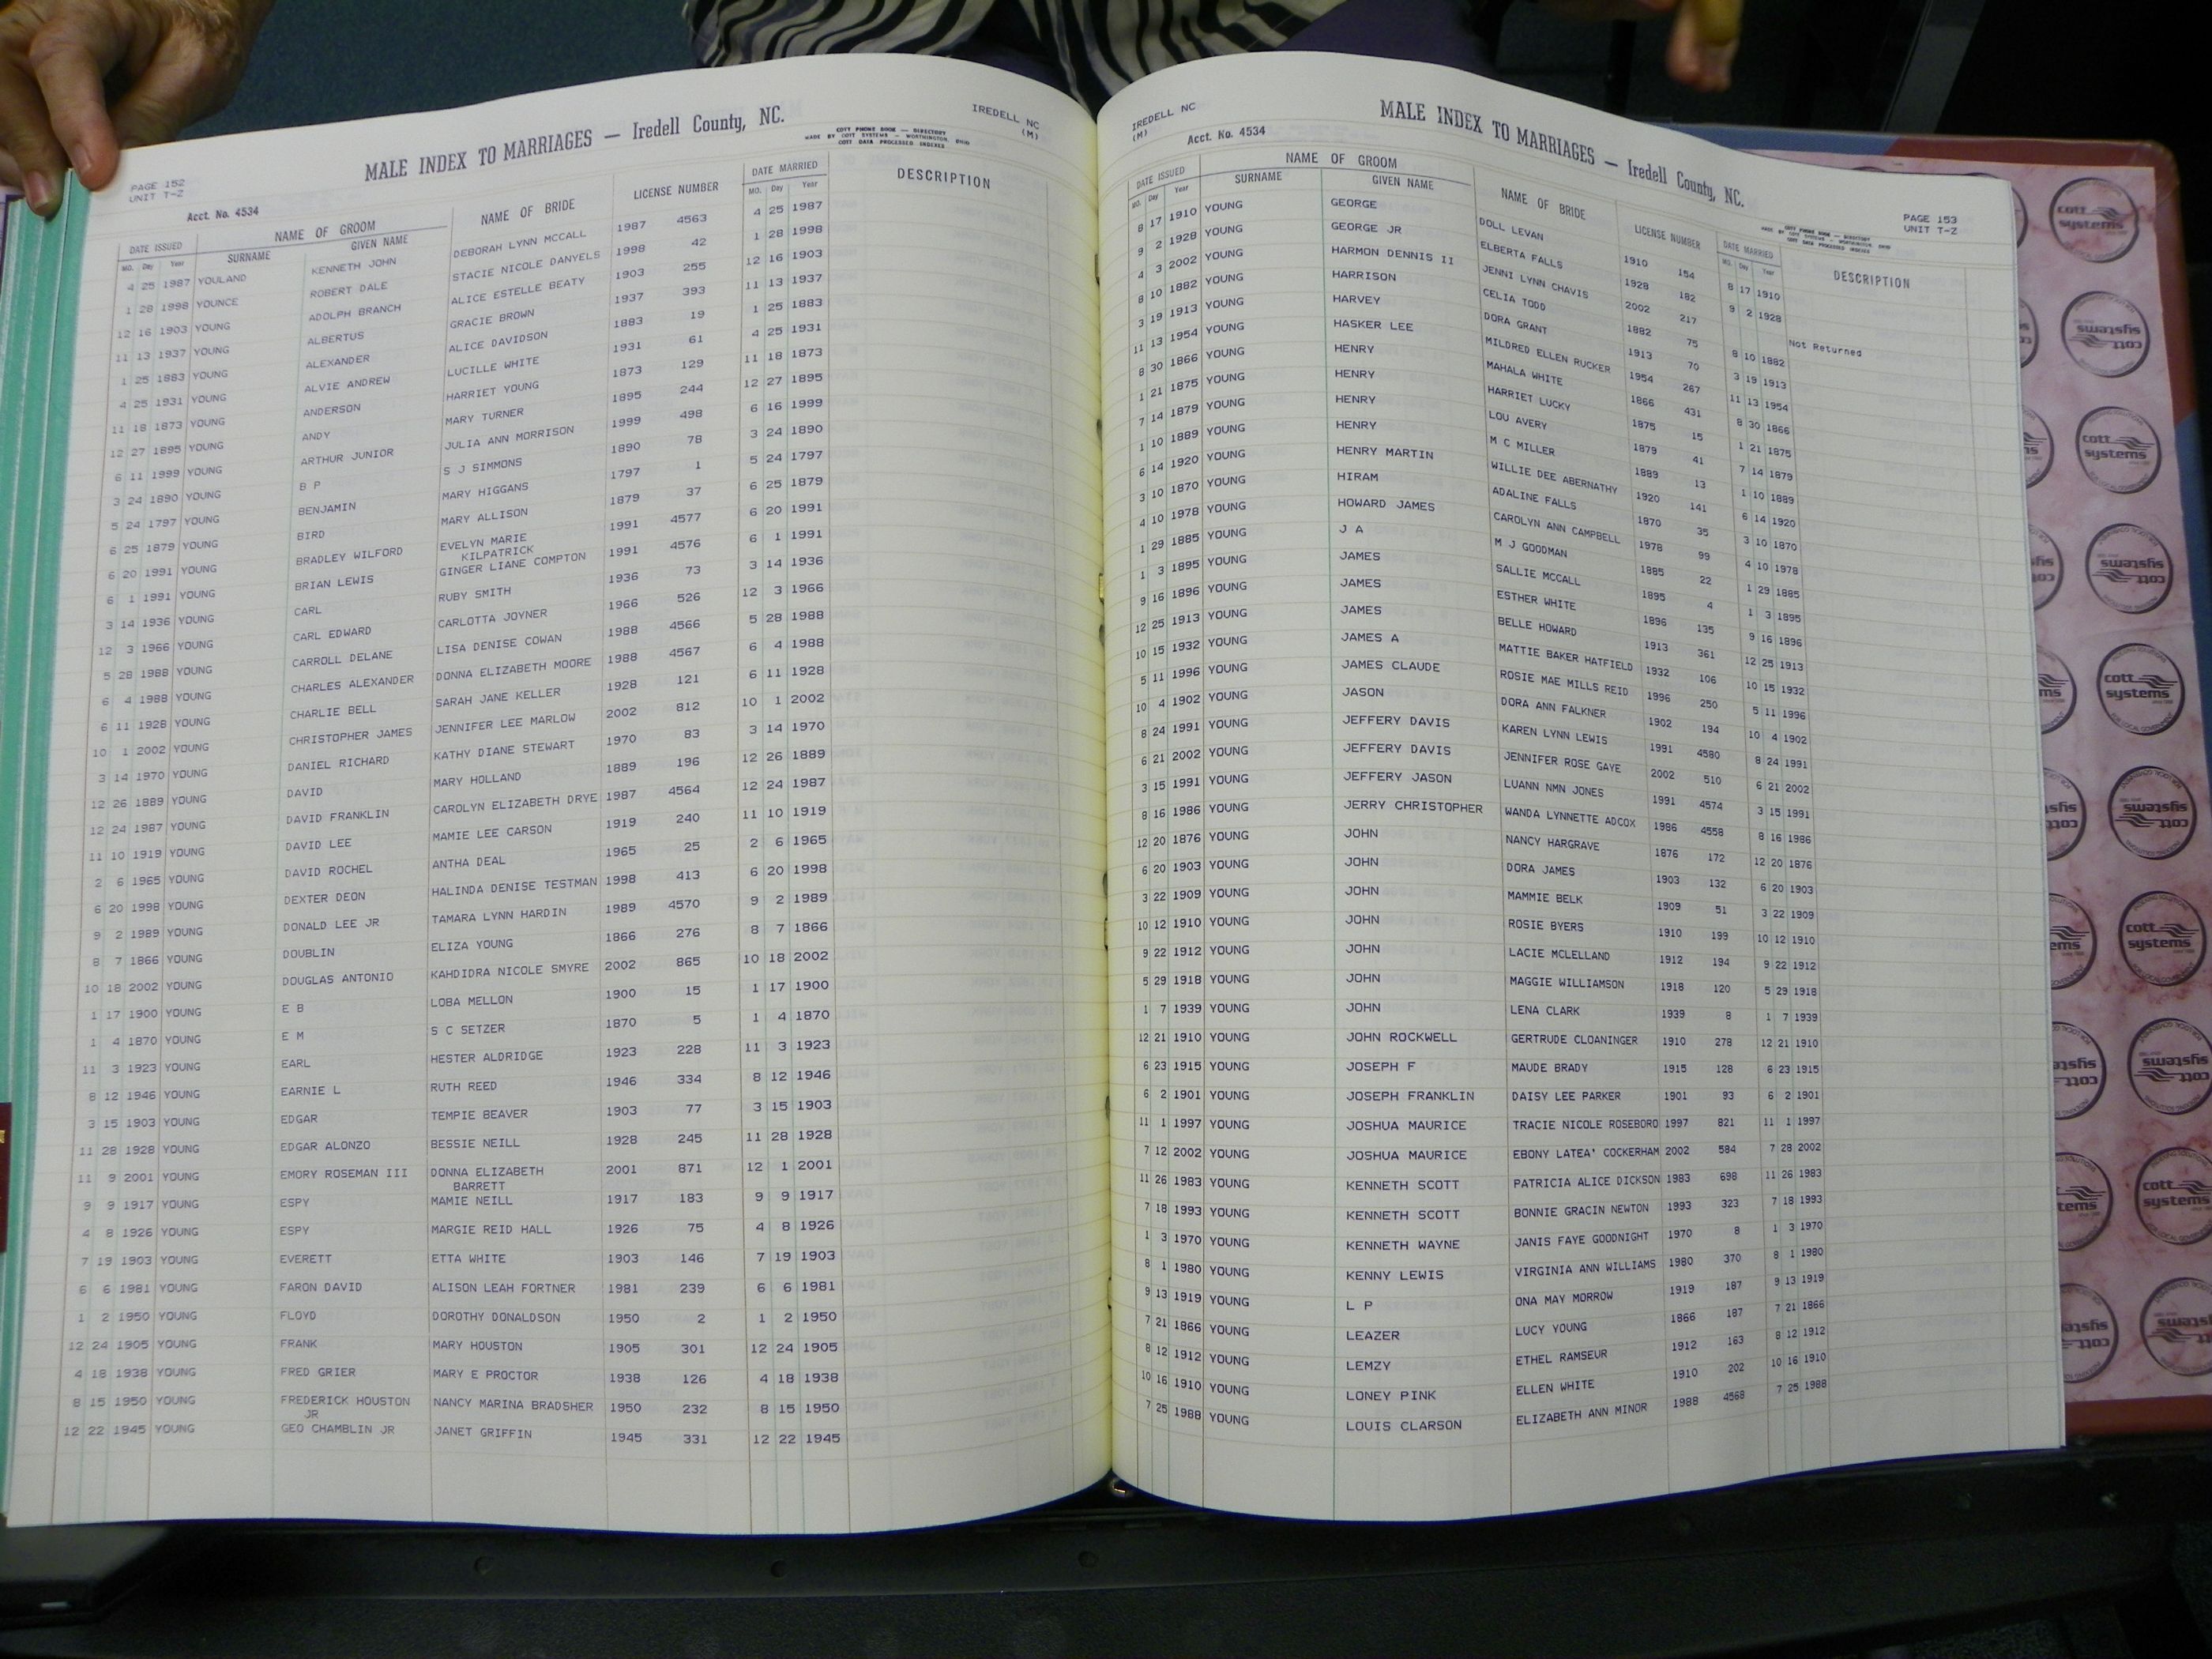 PAGE 152
UNIT T-Z
MALE INDEX TO MARRIAGES — Iredell County, NC.
IREDELL NC
(M)
COTT PHONE BOOK — DIRECTORY
MADE BY COTT SYSTEMS — WORTHINGTON, OHIO
COTT DATA PROCESSED INDEXES
Acct. No. 4534
DATE ISSUED NAME OF GROOM NAME OF BRIDE LICENSE NUMBER DATE MARRIED DESCRIPTION
MO. Day Year SURNAME GIVEN NAME MO. Day Year
4 25 1987 YOULAND KENNETH JOHN DEBORAH LYNN MCCALL 1987 4563 4 25 1987
1 28 1998 YOUNCE ROBERT DALE STACIE NICOLE DANYELS 1998 42 1 28 1998
12 16 1903 YOUNG ADOLPH BRANCH ALICE ESTELLE BEATY 1903 255 12 16 1903
11 13 1937 YOUNG ALBERTUS GRACIE BROWN 1937 393 11 13 1937
1 25 1883 YOUNG ALEXANDER ALICE DAVIDSON 1883 19 1 25 1883
4 25 1931 YOUNG ALVIE ANDREW LUCILLE WHITE 1931 61 4 25 1931
11 18 1873 YOUNG ANDERSON HARRIET YOUNG 1873 129 11 18 1873
12 27 1895 YOUNG ANDY MARY TURNER 1895 244 12 27 1895
6 11 1999 YOUNG ARTHUR JUNIOR JULIA ANN MORRISON 1999 498 6 16 1999
3 24 1890 YOUNG B P S J SIMMONS 1890 78 3 24 1890
5 24 1797 YOUNG BENJAMIN MARY HIGGANS 1797 1 5 24 1797
6 25 1879 YOUNG BIRD MARY ALLISON 1879 37 6 25 1879
6 20 1991 YOUNG BRADLEY WILFORD EVELYN MARIE 1991 4577 6 20 1991
KILPATRICK
6 1 1991 YOUNG BRIAN LEWIS GINGER LIANE COMPTON 1991 4576 6 1 1991
3 14 1936 YOUNG CARL RUBY SMITH 1936 73 3 14 1936
12 3 1966 YOUNG CARL EDWARD CARLOTTA JOYNER 1966 526 12 3 1966
5 28 1988 YOUNG CARROLL DELANE LISA DENISE COWAN 1988 4566 5 28 1988
6 4 1988 YOUNG CHARLES ALEXANDER DONNA ELIZABETH MOORE 1988 4567 6 4 1988
6 11 1928 YOUNG CHARLIE BELL SARAH JANE KELLER 1928 121 6 11 1928
10 1 2002 YOUNG CHRISTOPHER JAMES JENNIFER LEE MARLOW 2002 812 10 1 2002
3 14 1970 YOUNG DANIEL RICHARD KATHY DIANE STEWART 1970 83 3 14 1970
12 26 1889 YOUNG DAVID MARY HOLLAND 1889 196 12 26 1889
12 24 1987 YOUNG DAVID FRANKLIN CAROLYN ELIZABETH DRYE 1987 4564 12 24 1987
11 10 1919 YOUNG DAVID LEE MAMIE LEE CARSON 1919 240 11 10 1919
2 6 1965 YOUNG DAVID ROCHEL ANTHA DEAL 1965 25 2 6 1965
6 20 1998 YOUNG DEXTER DEON HALINDA DENISE TESTMAN 1998 413 6 20 1998
9 2 1989 YOUNG DONALD LEE JR TAMARA LYNN HARDIN 1989 4570 9 2 1989
8 7 1866 YOUNG DOUBLIN ELIZA YOUNG 1866 276 8 7 1866
10 18 2002 YOUNG DOUGLAS ANTONIO KAHDIDRA NICOLE SMYRE 2002 865 10 18 2002
1 17 1900 YOUNG E B LOBA MELLON 1900 15 1 17 1900
1 4 1870 YOUNG E M S C SETZER 1870 5 1 4 1870
11 3 1923 YOUNG EARL HESTER ALDRIDGE 1923 228 11 3 1923
8 12 1946 YOUNG EARNIE L RUTH REED 1946 334 8 12 1946
3 15 1903 YOUNG EDGAR TEMPIE BEAVER 1903 77 3 15 1903
11 28 1928 YOUNG EDGAR ALONZO BESSIE NEILL 1928 245 11 28 1928
11 9 2001 YOUNG EMORY ROSEMAN III DONNA ELIZABETH 2001 871 12 1 2001
BARRETT
9 9 1917 YOUNG ESPY MAMIE NEILL 1917 183 9 9 1917
4 8 1926 YOUNG ESPY MARGIE REID HALL 1926 75 4 8 1926
7 19 1903 YOUNG EVERETT ETTA WHITE 1903 146 7 19 1903
6 6 1981 YOUNG FARON DAVID ALISON LEAH FORTNER 1981 239 6 6 1981
1 2 1950 YOUNG FLOYD DOROTHY DONALDSON 1950 2 1 2 1950
12 24 1905 YOUNG FRANK MARY HOUSTON 1905 301 12 24 1905
4 18 1938 YOUNG FRED GRIER MARY E PROCTOR 1938 126 4 18 1938
8 15 1950 YOUNG FREDERICK HOUSTON NANCY MARINA BRADSHER 1950 232 8 15 1950
JR
12 22 1945 YOUNG GEO CHAMBLIN JR JANET GRIFFIN 1945 331 12 22 1945
IREDELL NC
(M)
MALE INDEX TO MARRIAGES — Iredell County, NC.
PAGE 153
UNIT T-Z
Acct. No. 4534
COTT PHONE BOOK — DIRECTORY
MADE BY COTT SYSTEMS — WORTHINGTON, OHIO
COTT DATA PROCESSED INDEXES
DATE ISSUED NAME OF GROOM NAME OF BRIDE LICENSE NUMBER DATE MARRIED DESCRIPTION
MO. Day Year SURNAME GIVEN NAME MO. Day Year
8 17 1910 YOUNG GEORGE DOLL LEVAN 1910 154 8 17 1910
9 2 1928 YOUNG GEORGE JR ELBERTA FALLS 1928 182 9 2 1928
4 3 2002 YOUNG HARMON DENNIS II JENNI LYNN CHAVIS 2002 217 Not Returned
8 10 1882 YOUNG HARRISON CELIA TODD 1882 75 8 10 1882
3 19 1913 YOUNG HARVEY DORA GRANT 1913 70 3 19 1913
11 13 1954 YOUNG HASKER LEE MILDRED ELLEN RUCKER 1954 267 11 13 1954
8 30 1866 YOUNG HENRY MAHALA WHITE 1866 431 8 30 1866
1 21 1875 YOUNG HENRY HARRIET LUCKY 1875 15 1 21 1875
7 14 1879 YOUNG HENRY LOU AVERY 1879 41 7 14 1879
1 10 1889 YOUNG HENRY M C MILLER 1889 13 1 10 1889
6 14 1920 YOUNG HENRY MARTIN WILLIE DEE ABERNATHY 1920 141 6 14 1920
3 10 1870 YOUNG HIRAM ADALINE FALLS 1870 35 3 10 1870
4 10 1978 YOUNG HOWARD JAMES CAROLYN ANN CAMPBELL 1978 99 4 10 1978
1 29 1885 YOUNG J A M J GOODMAN 1885 22 1 29 1885
1 3 1895 YOUNG JAMES SALLIE MCCALL 1895 4 1 3 1895
9 16 1896 YOUNG JAMES ESTHER WHITE 1896 135 9 16 1896
12 25 1913 YOUNG JAMES BELLE HOWARD 1913 361 12 25 1913
10 15 1932 YOUNG JAMES A MATTIE BAKER HATFIELD 1932 106 10 15 1932
5 11 1996 YOUNG JAMES CLAUDE ROSIE MAE MILLS REID 1996 250 5 11 1996
10 4 1902 YOUNG JASON DORA ANN FALKNER 1902 194 10 4 1902
8 24 1991 YOUNG JEFFERY DAVIS KAREN LYNN LEWIS 1991 4580 8 24 1991
6 21 2002 YOUNG JEFFERY DAVIS JENNIFER ROSE GAYE 2002 510 6 21 2002
3 15 1991 YOUNG JEFFERY JASON LUANN NMN JONES 1991 4574 3 15 1991
8 16 1986 YOUNG JERRY CHRISTOPHER WANDA LYNNETTE ADCOX 1986 4558 8 16 1986
12 20 1876 YOUNG JOHN NANCY HARGRAVE 1876 172 12 20 1876
6 20 1903 YOUNG JOHN DORA JAMES 1903 132 6 20 1903
3 22 1909 YOUNG JOHN MAMMIE BELK 1909 51 3 22 1909
10 12 1910 YOUNG JOHN ROSIE BYERS 1910 199 10 12 1910
9 22 1912 YOUNG JOHN LACIE MCLELLAND 1912 194 9 22 1912
5 29 1918 YOUNG JOHN MAGGIE WILLIAMSON 1918 120 5 29 1918
1 7 1939 YOUNG JOHN LENA CLARK 1939 8 1 7 1939
12 21 1910 YOUNG JOHN ROCKWELL GERTRUDE CLOANINGER 1910 278 12 21 1910
6 23 1915 YOUNG JOSEPH F MAUDE BRADY 1915 128 6 23 1915
6 2 1901 YOUNG JOSEPH FRANKLIN DAISY LEE PARKER 1901 93 6 2 1901
11 1 1997 YOUNG JOSHUA MAURICE TRACIE NICOLE ROSEBORO 1997 821 11 1 1997
7 12 2002 YOUNG JOSHUA MAURICE EBONY LATEA' COCKERHAM 2002 584 7 28 2002
11 26 1983 YOUNG KENNETH SCOTT PATRICIA ALICE DICKSON 1983 698 11 26 1983
7 18 1993 YOUNG KENNETH SCOTT BONNIE GRACIN NEWTON 1993 323 7 18 1993
1 3 1970 YOUNG KENNETH WAYNE JANIS FAYE GOODNIGHT 1970 8 1 3 1970
8 1 1980 YOUNG KENNY LEWIS VIRGINIA ANN WILLIAMS 1980 370 8 1 1980
9 13 1919 YOUNG L P ONA MAY MORROW 1919 187 9 13 1919
7 21 1866 YOUNG LEAZER LUCY YOUNG 1866 187 7 21 1866
8 12 1912 YOUNG LEMZY ETHEL RAMSEUR 1912 163 8 12 1912
10 16 1910 YOUNG LONEY PINK ELLEN WHITE 1910 202 10 16 1910
7 25 1988 YOUNG LOUIS CLARSON ELIZABETH ANN MINOR 1988 4568 7 25 1988
cott
systems
cott
systems
cott
systems
cott
systems
cott
systems
cott
systems